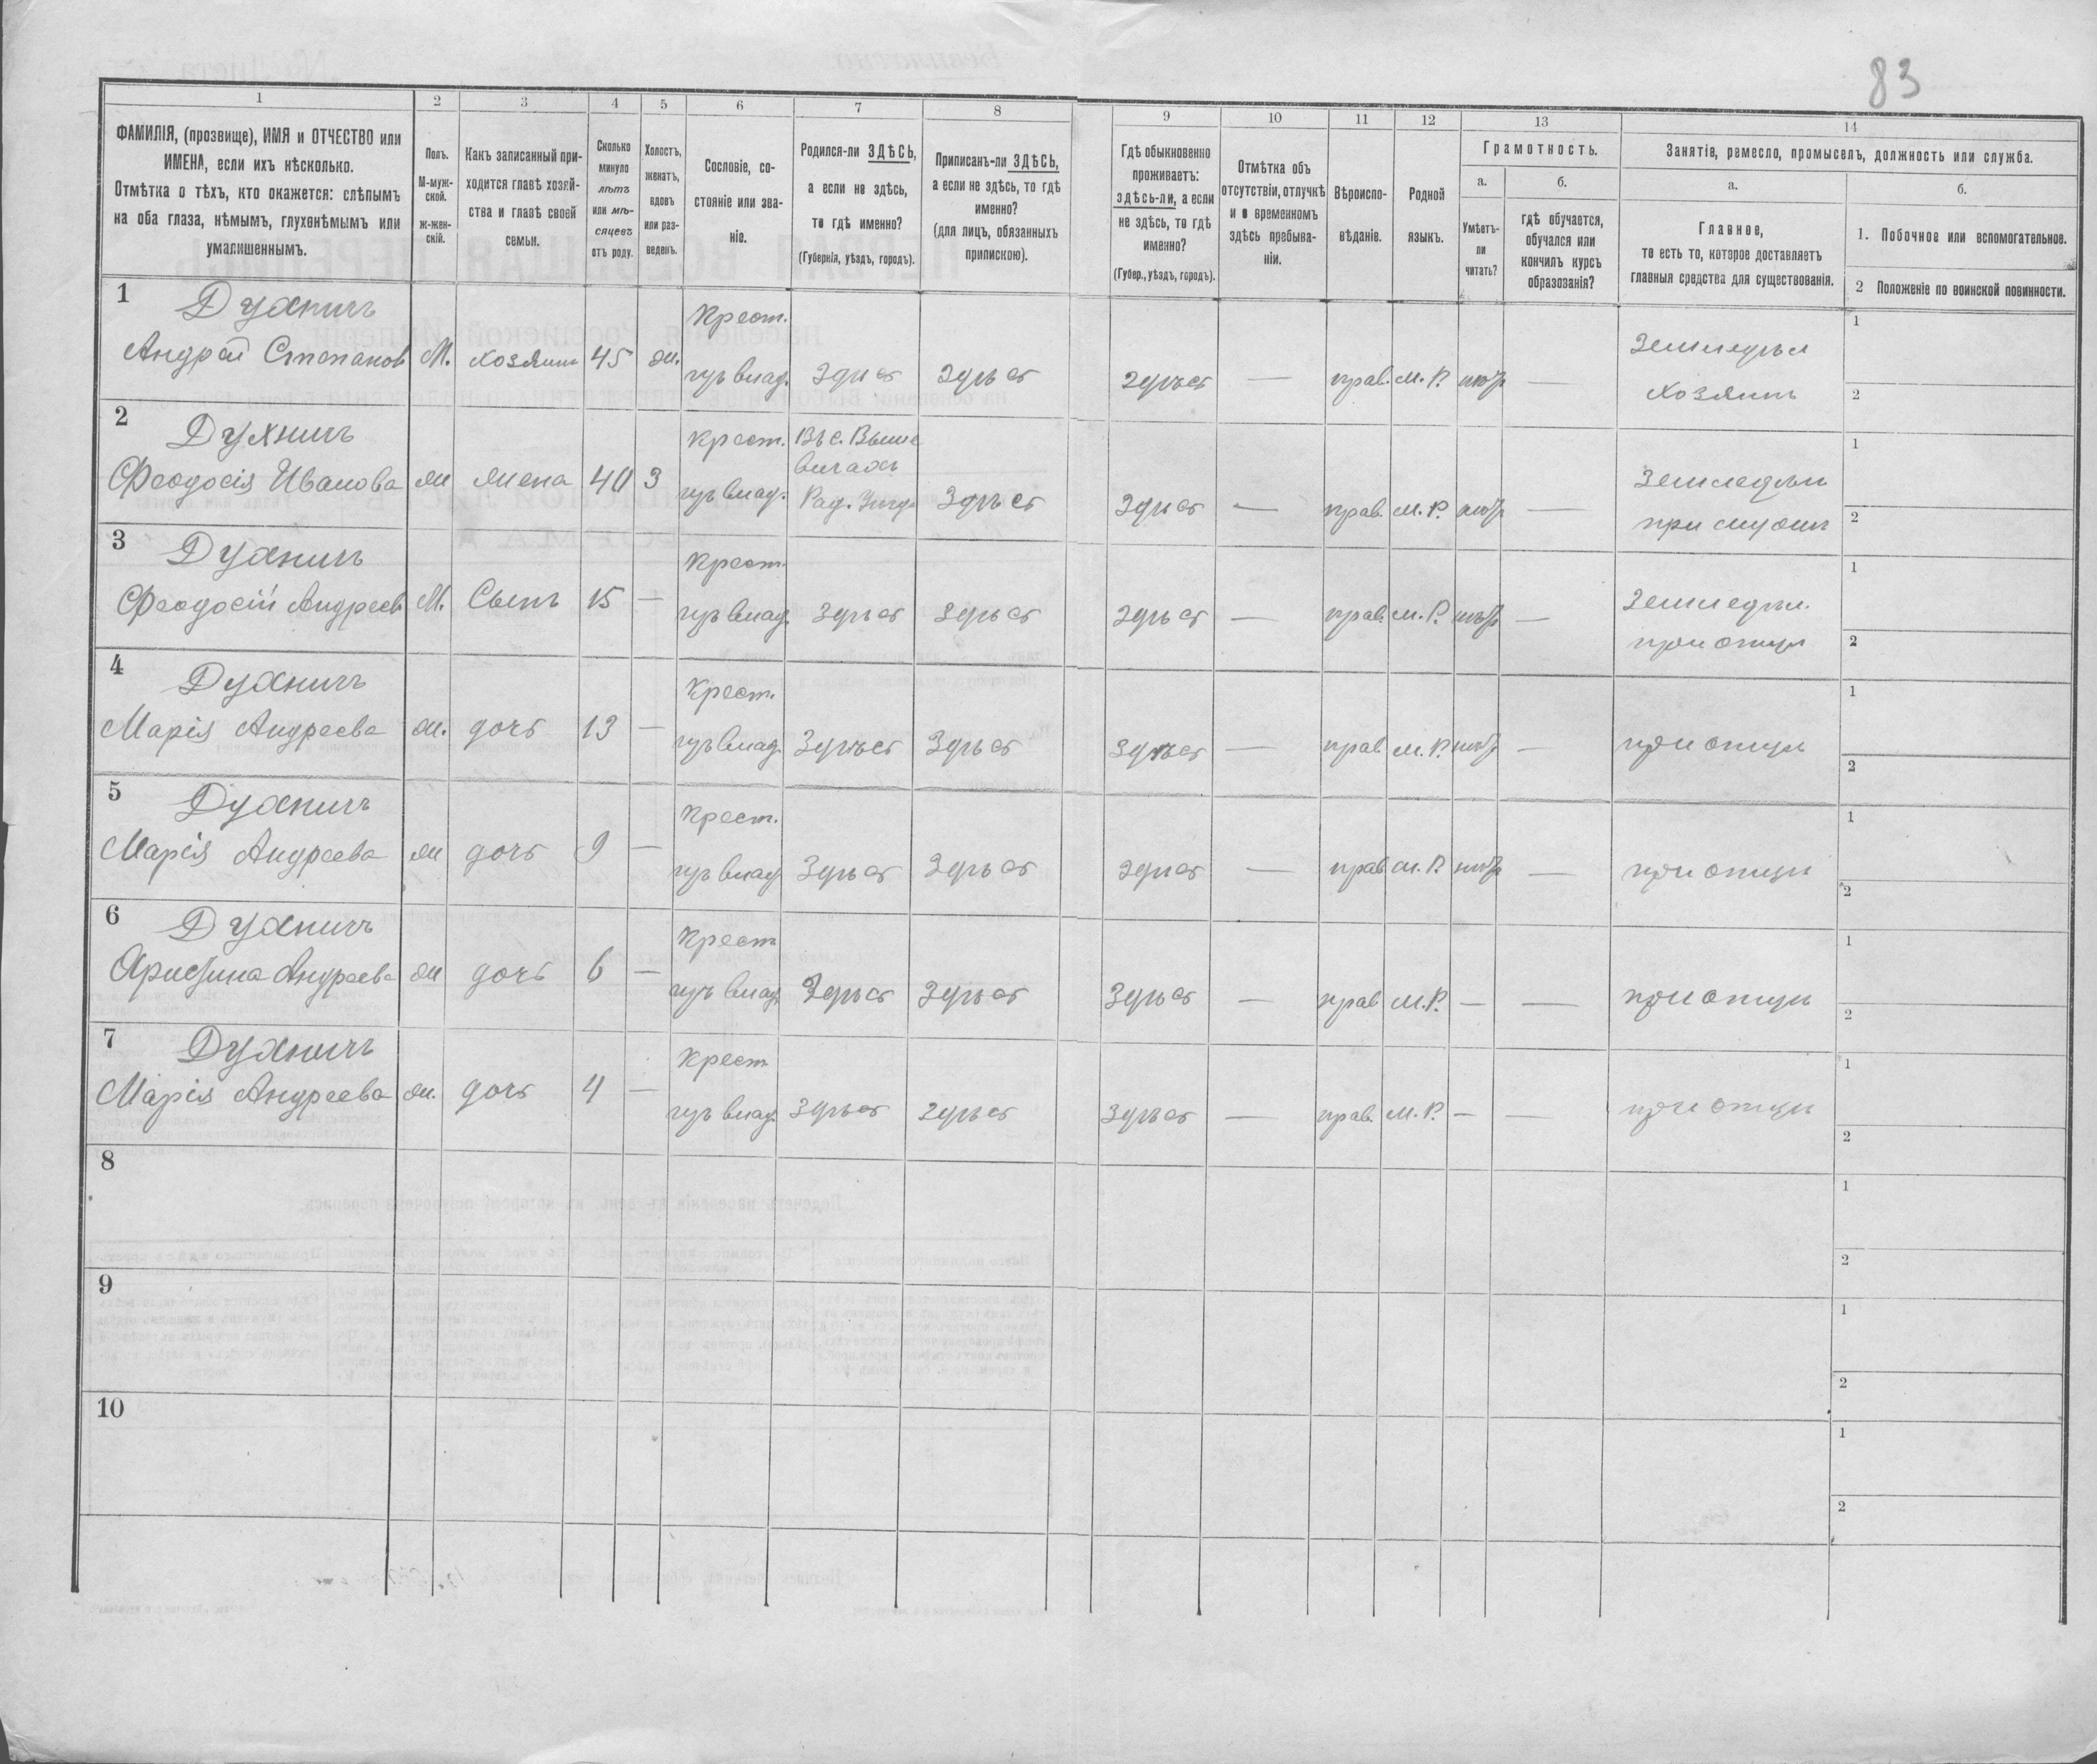 83
1 2 3 4 5 6 7 8 9 10 11 12 13 14
ФАМИЛІЯ, (прозвище), ИМЯ и ОТЧЕСТВО или
ИМЕНА, если ихъ нѣсколько.
Отмѣтка о тѣхъ, кто окажется: слѣпымъ
на оба глаза, нѣмымъ, глухонѣмымъ или
умалишеннымъ.
Полъ.
М-муж-
ской.
ж-жен-
скій.
Какъ записанный при-
ходится главѣ хозяй-
ства и главѣ своей
семьи.
Сколько
минуло
лѣтъ
или мѣ-
сяцевъ
отъ роду.
Холостъ,
женатъ,
вдовъ
или раз-
веденъ.
Сословіе, со-
стояніе или зва-
ніе.
Родился-ли ЗДѢСЬ,
а если не здѣсь,
то гдѣ именно?
(Губернія, уѣздъ, городъ).
Приписанъ-ли ЗДѢСЬ,
а если не здѣсь, то гдѣ
именно?
(для лицъ, обязанныхъ
припискою).
Гдѣ обыкновенно
проживаетъ:
здѣсь-ли, а если
не здѣсь, то гдѣ
именно?
(Губер., уѣздъ, городъ).
Отмѣтка объ
отсутствіи, отлучкѣ
и о временномъ
здѣсь пребыва-
ніи.
Вѣроиспо-
вѣданіе.
Родной
языкъ.
Грамотность.
а.
Умѣетъ-
ли
читать?
б.
гдѣ обучается,
обучался или
кончилъ курсъ
образованія?
Занятіе, ремесло, промыселъ, должность или служба.
а.
Главное,
то есть то, которое доставляетъ
главныя средства для существованія.
б.
1. Побочное или вспомогательное.
2 Положеніе по воинской повинности.
1 Духничъ Крест. Земледѣл 1
Андрей Степановъ М. хозяинъ 45 ж. изъ влад. Здѣсь Здѣсь Здѣсь — прав. М. Р. — хозяинъ 2
2 Духничъ Крест. Въ с. 1
Феодосія Иванова ж жена 40 З изъ влад. Рад. Здѣсь Здѣсь — прав. М. Р. — Земледѣл при мужѣ 2
3 Духничъ Крест. Земледѣл. 1
Феодосій Андреев М. Сынъ 15 — изъ влад. Здѣсь Здѣсь Здѣсь — прав. М. Р. — при отцѣ 2
4 Духничъ Крест. 1
Марія Андреева ж. дочь 13 — изъ влад. Здѣсь Здѣсь Здѣсь — прав М. Р. — при отцѣ 2
5 Духничъ Крест. 1
Марія Андреева ж дочь 9 — изъ влад Здѣсь Здѣсь Здѣсь — прав М. Р. — при отцѣ 2
6 Духничъ Крест 1
Андреева ж дочь 6 — изъ влад. Здѣсь Здѣсь Здѣсь — прав М. Р. — — при отцѣ 2
7 Духничъ Крест 1
Марія Андреева ж. дочь 4 — изъ влад. Здѣсь Здѣсь Здѣсь — прав. М. Р. — — при отцѣ 2
8 1
2
9 1
2
10 1
2